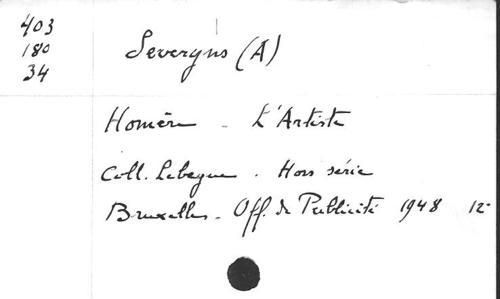 403
180
34
Severyns (A)
Homère - L'Artiste
Coll. Lebegue. Hors série
Bruxelles - Off. de Publicité 1948 12°